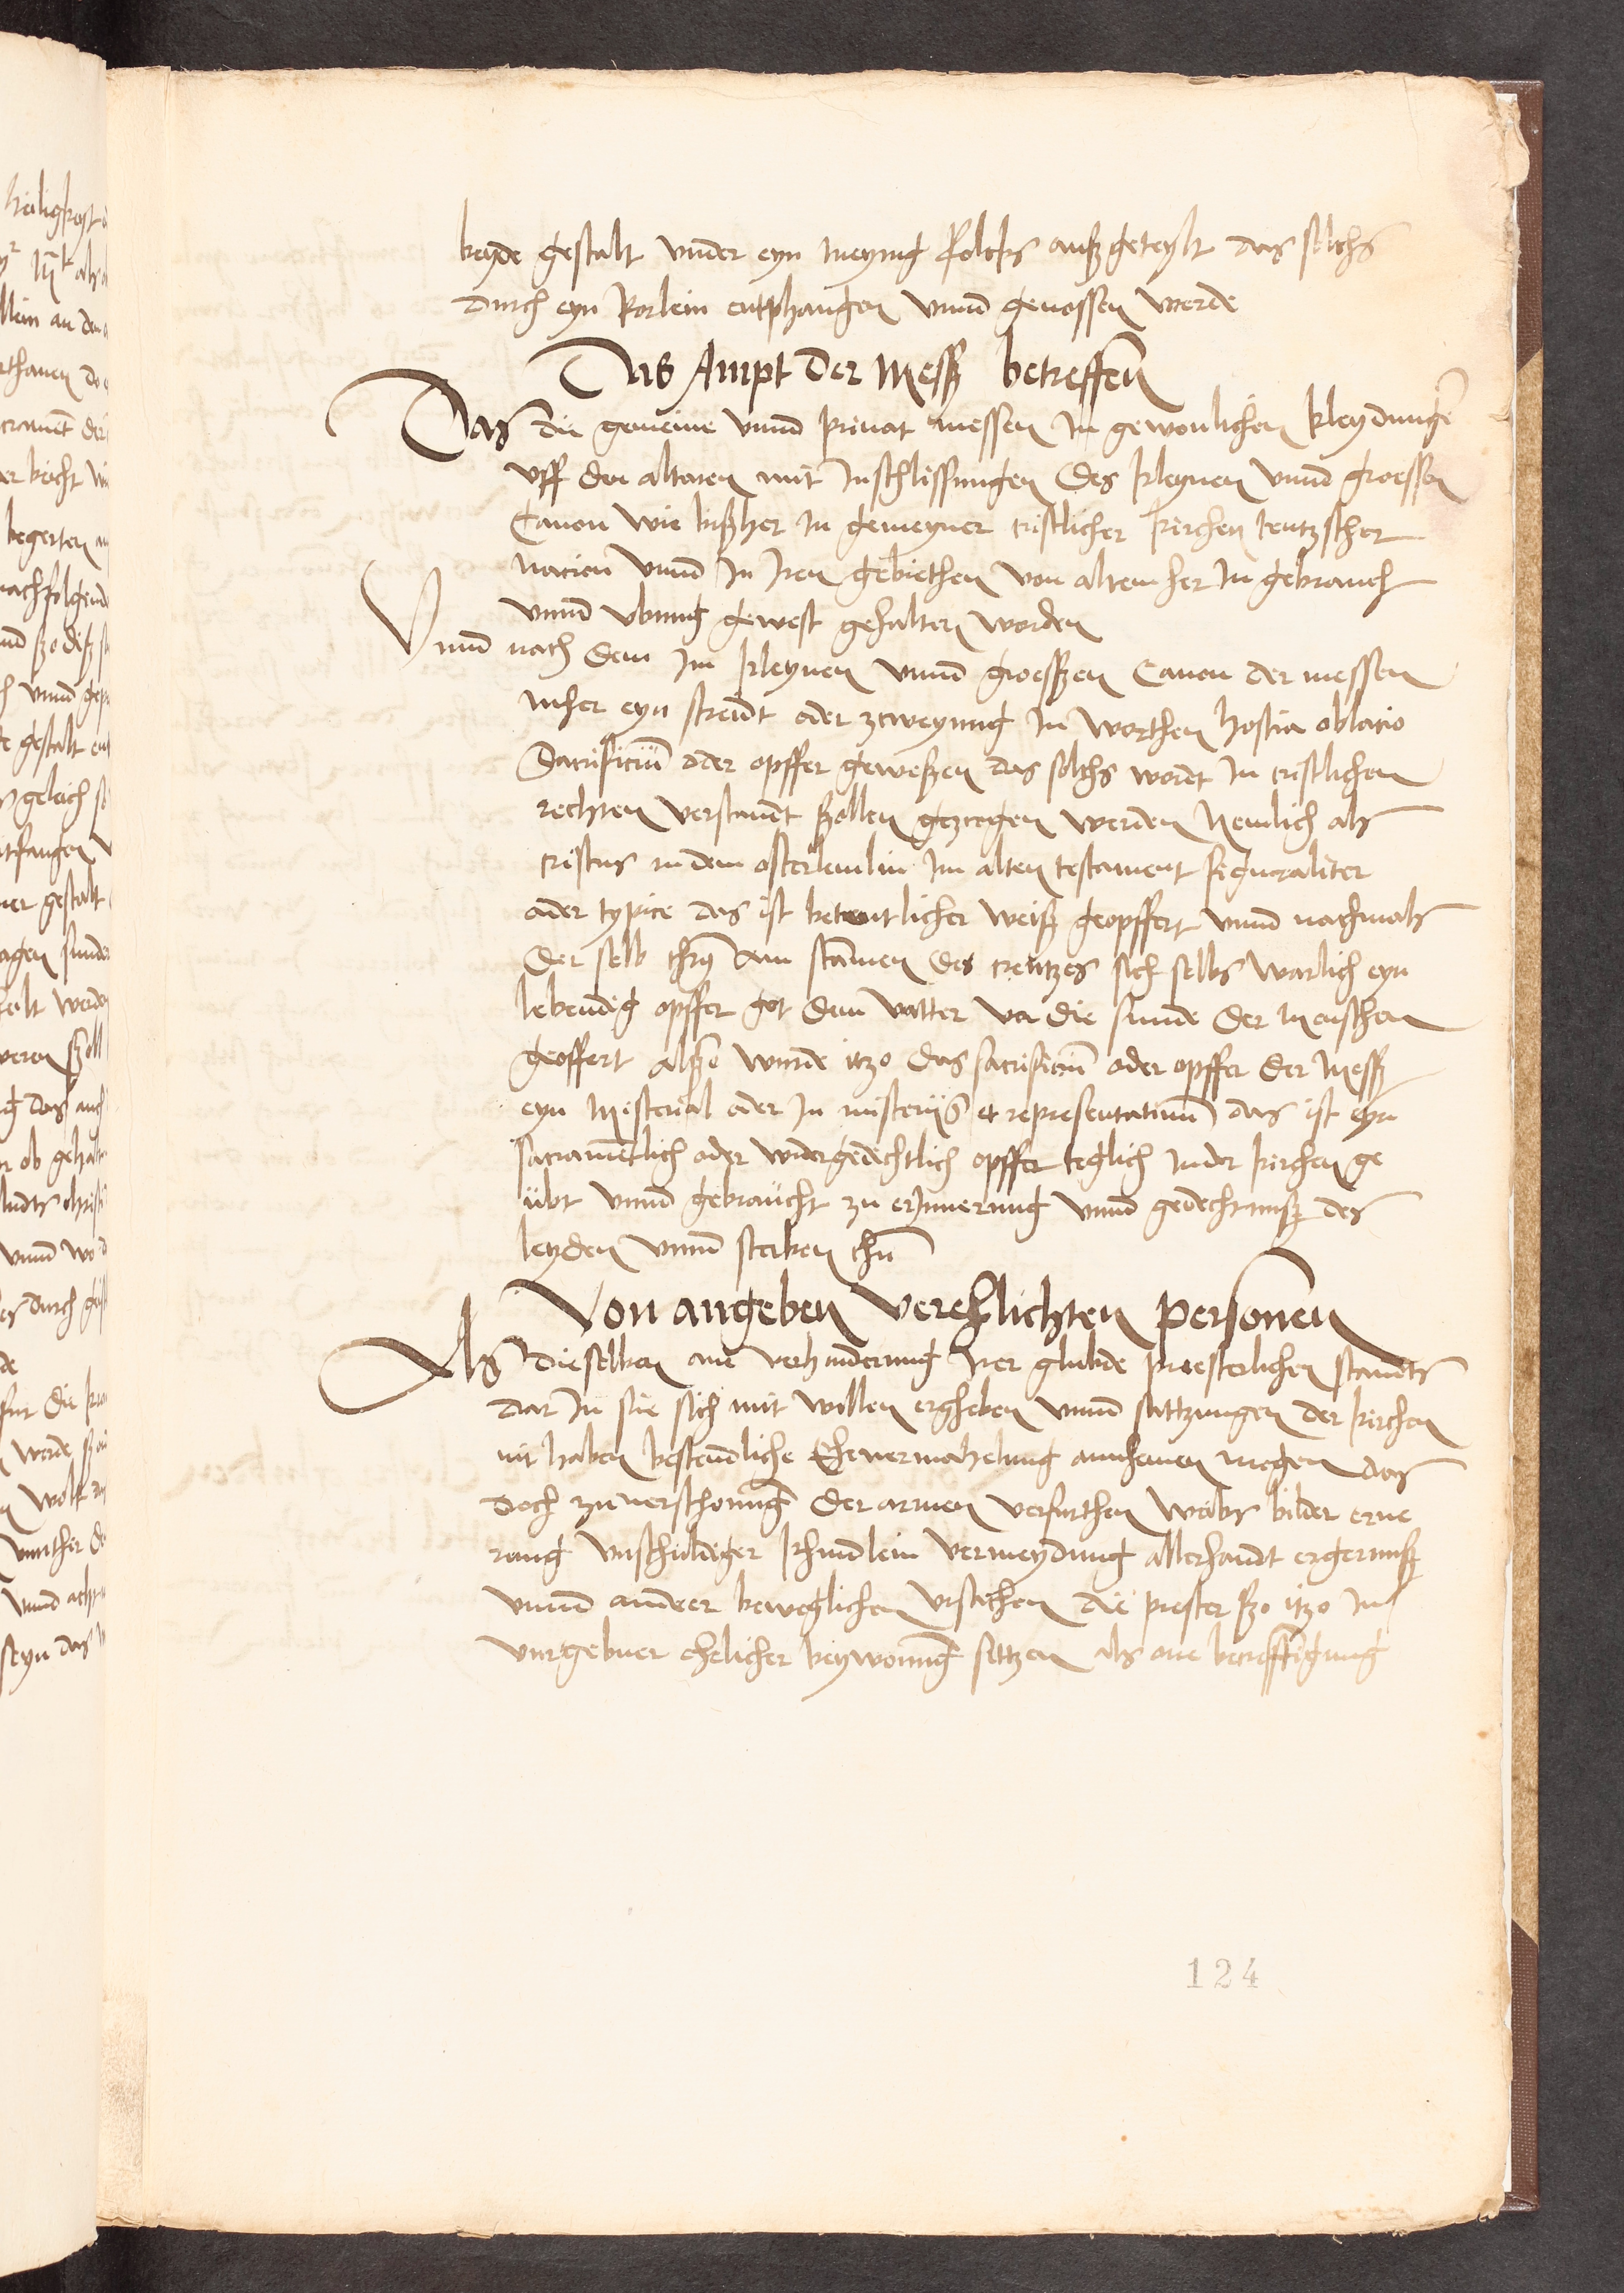 beyde gestalt vnder eyn meynig folcks außgeteylt das solchs
durch eyn Rorlein entphangen vnnd genossen werde
Das Ampt der Messz betreffen
Das die gemeine vnnd priuat messen In gewonlichen kleydungen
vff den altaren mit Inschlissungen des kleynen vnnd groessen
Canon wie bißher In gemeyner cristlicher kirchen teutzscher
nacion vnnd In Iren gebiethen von altem her In gebrauch
vnnd vbung gewest gehalten worden
Vnnd nach dem Im kleynen vnnd groesszen Canon der messen
nicher eyn streidt oder zweyung In worthen hostia oblacio
Sacrificiu oder opffer geweßen das solchs wordt In cristlichem
rechten verstandt ßollen gezcogen werden Nemlich als
cristus in dem osterlemlin Im alten testament figuraliter
oder typice das ist betewtlicher weiß geopffert vnnd nachmals
der selb chrs am stamen des creutzes sich selbs warlich eyn
lebendig opffer got dem vatter vor die sunde der menschen
geoffert alßo wurde itzo das sacrificiu oder opffer der Messz
eyn Misterial oder In misteriis et representatiuu das ist eyn
sacramentlich oder widergedechtlich opffer teglich Inder kirchen ge
übt vnnd gebraucht zu erInnerung vnnd gedechtnusz des
leyden vnnd sterben chri
Von angeben verehlichten personen
Als dieselben ane verhinderung Irer glubde priesterlichen standts
dar In sie sich mit willen ergheben vnnd sattzungen der kirchen
nit haben bestendliche Ehevermahelung annhemen mogen das
doch zu verschonung der armen verfurthen weibs bilder erne
rung vnschuldiger kyndlein vermeydung allerhandt ergernusz
vnnd annderer beweglichen vrsachen die prester ßo itzo In
vorgebner ehelicher beywonung sittzen als one becrefftigung
124